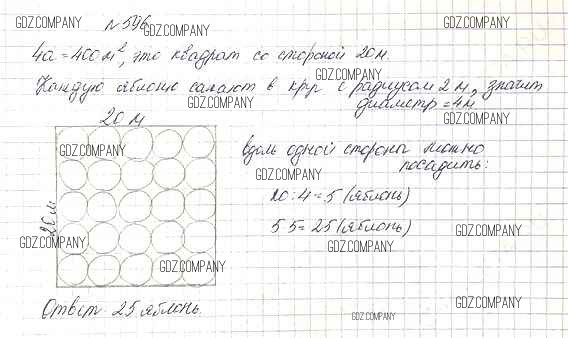 GDZ.COMPANY
№ 596
GDZ.COMPANY
GDZ.COMPANY
4а = 400 м², это квадрат со стороной 20 м.
GDZ.COMPANY
Каждую яблоню сажают в круг с радиусом 2 м, значит
GDZ.COMPANY
диаметр = 4м
GDZ.COMPANY
20 м
вдоль одной стороны можно
посадить:
GDZ.COMPANY
GDZ.COMPANY
20 : 4 = 5 (яблонь)
20м
5 5 = 25 (яблонь)
GDZ.COMPANY
GDZ.COMPANY
GDZ.COMPANY
GDZ.COMPANY
Ответ 25 яблонь.
GDZ.COMPANY
GDZ.COMPANY